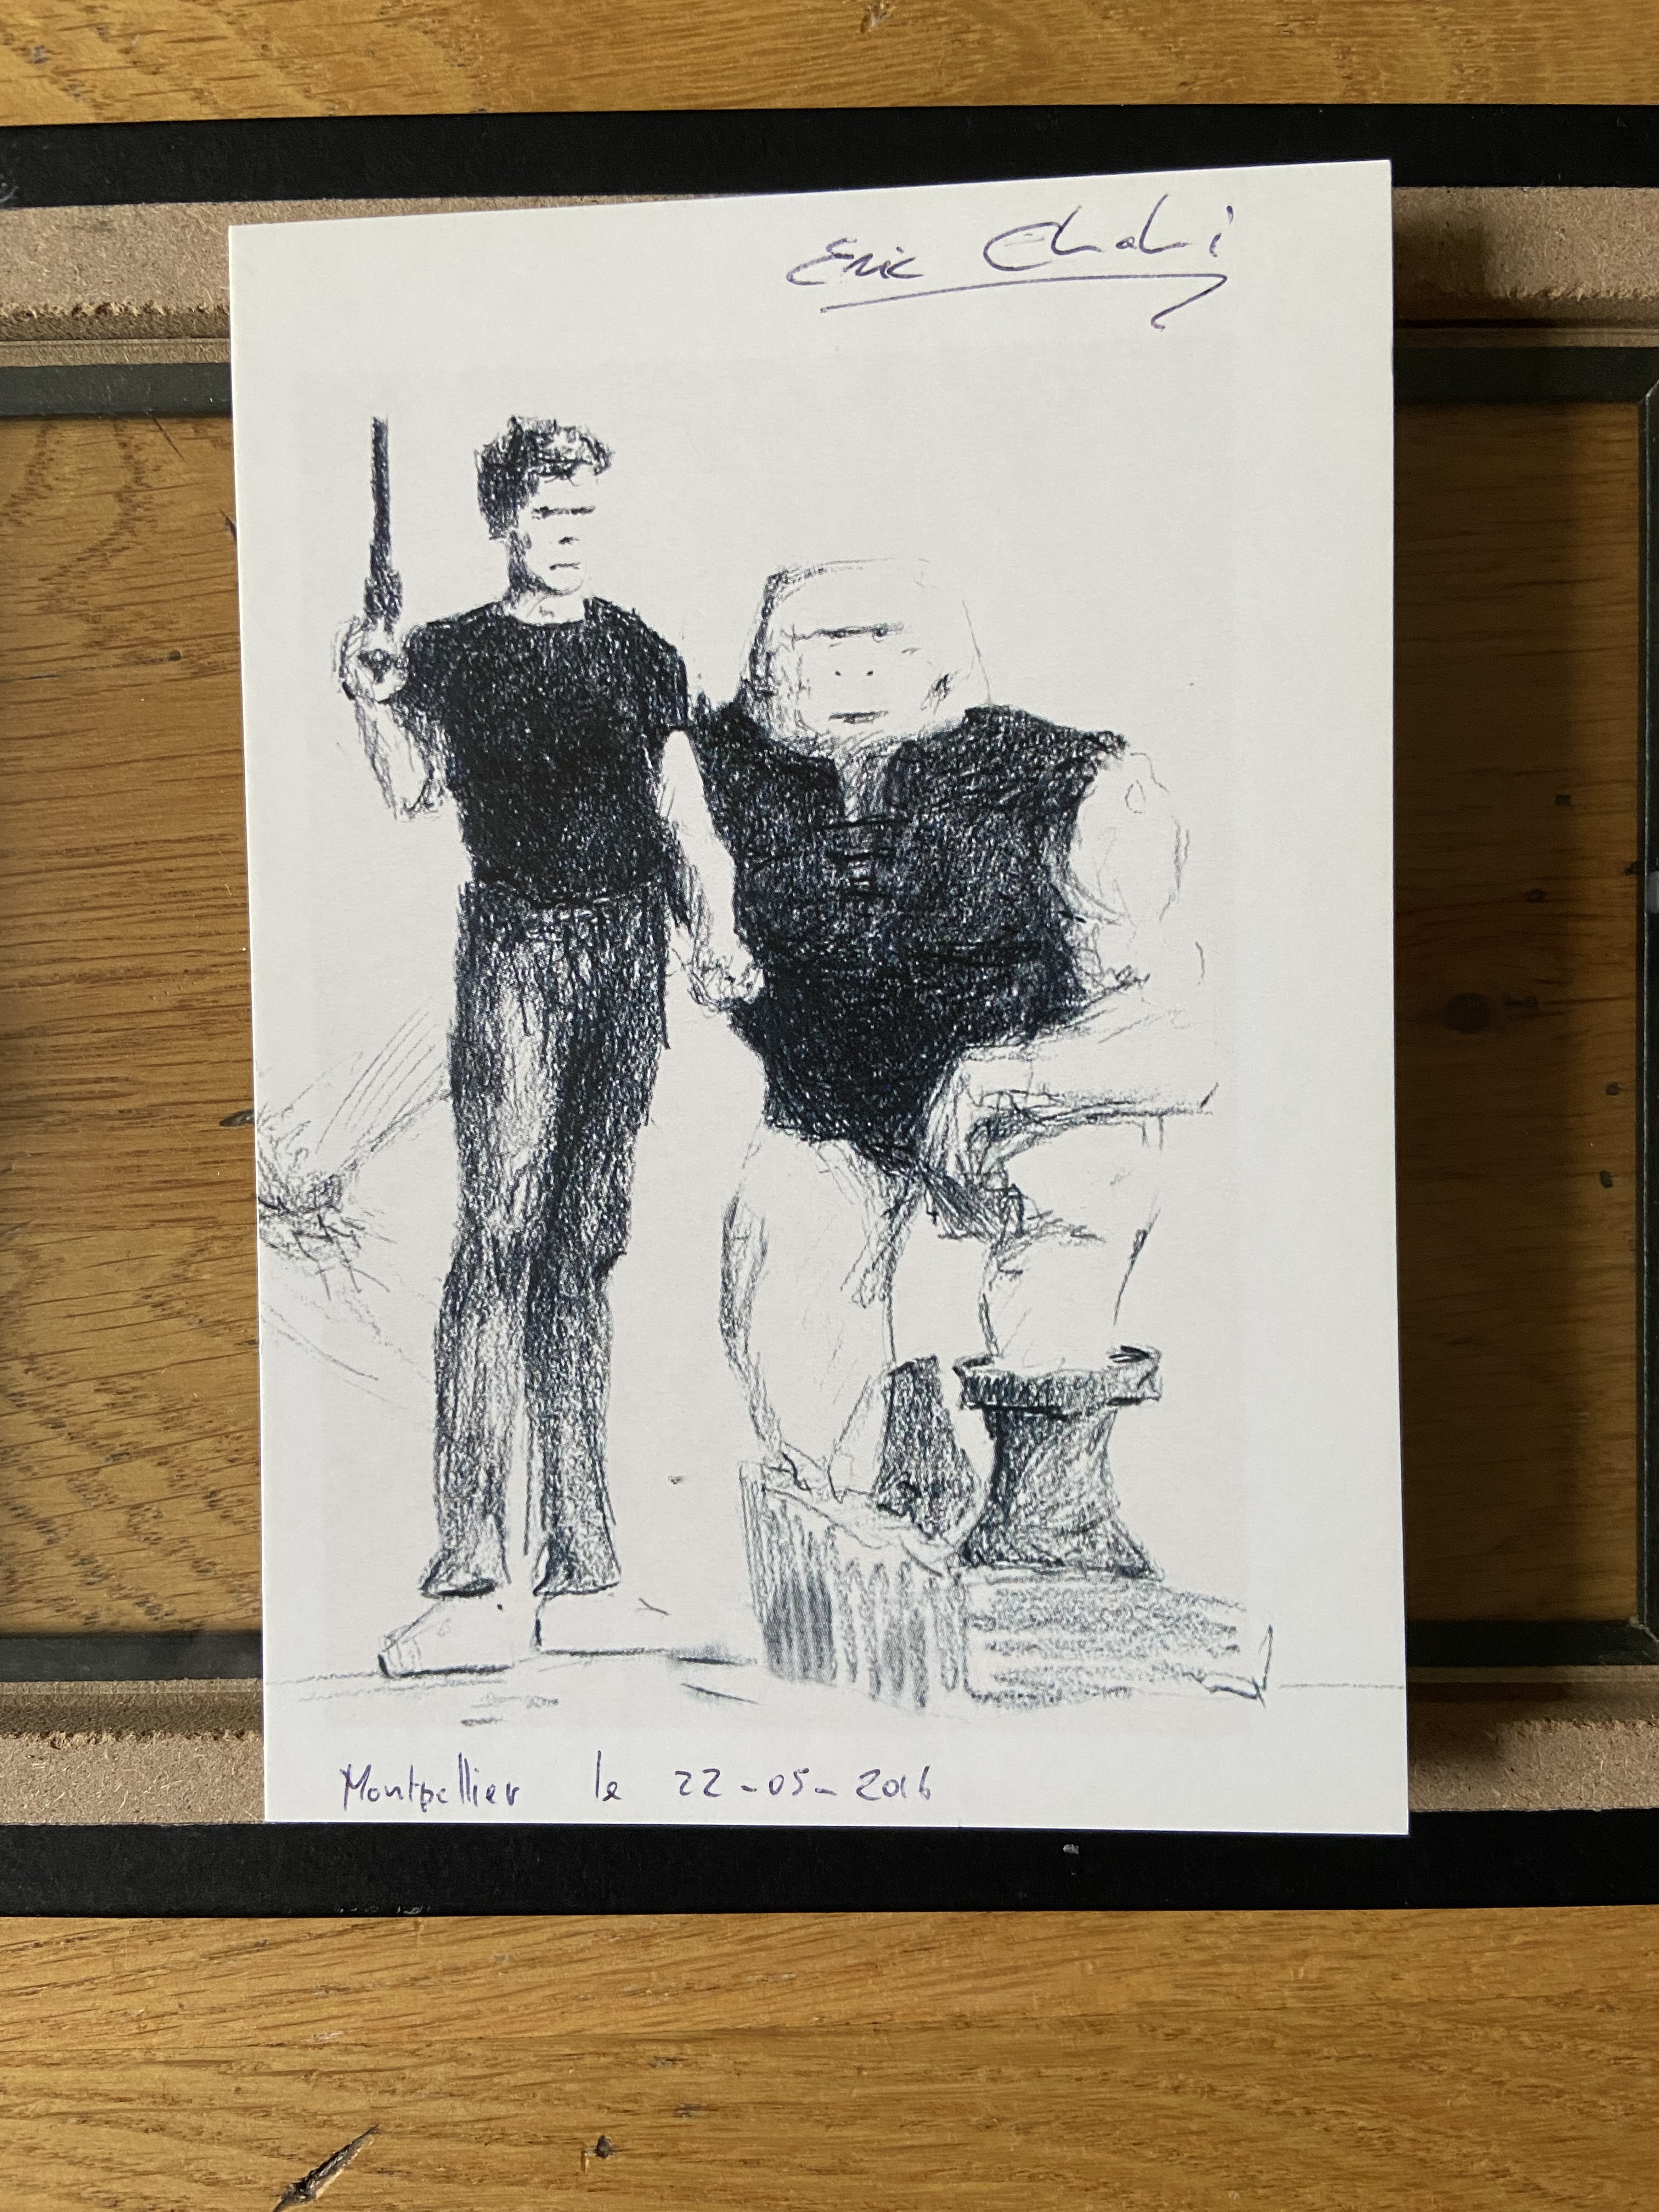 Eric Chahi
Montpellier le 22-05-2016